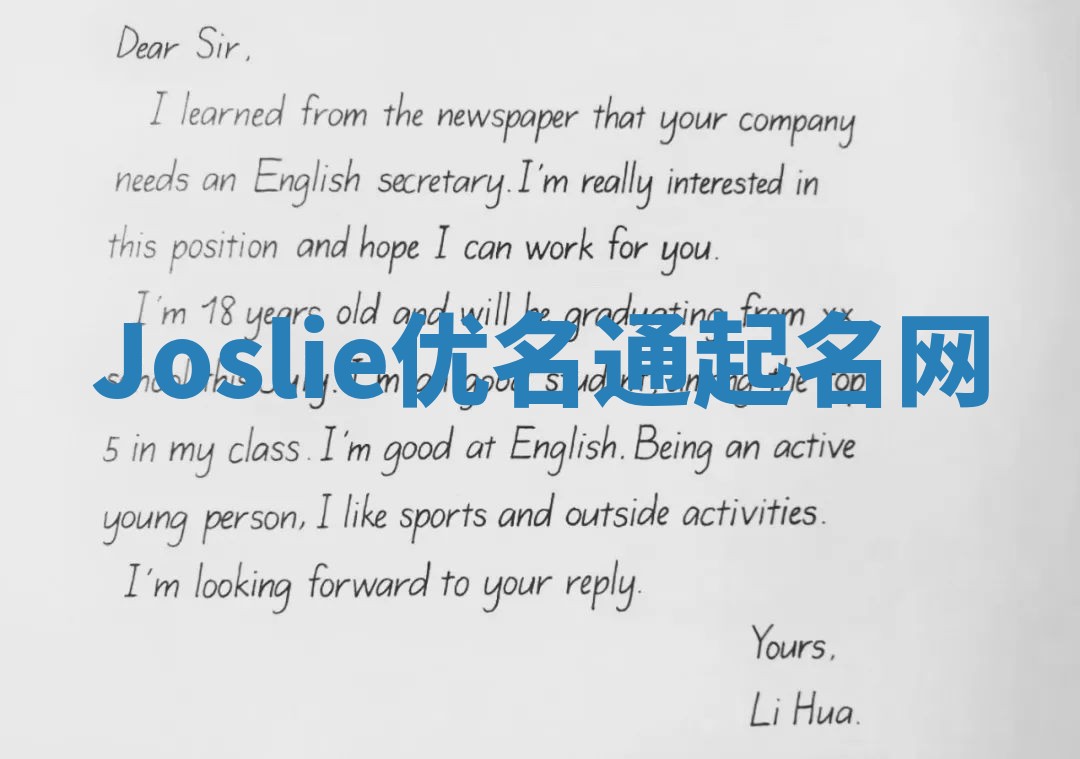 Dear Sir,
I learned from the newspaper that your company
needs an English secretary. I'm really interested in
this position and hope I can work for you.
I'm 18 years old and will be graduating from xx
Joslie优名通起名网
school this July. I'm a good student, among the top
5 in my class. I'm good at English. Being an active
young person, I like sports and outside activities.
I'm looking forward to your reply.
Yours,
Li Hua.